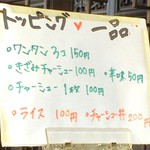 トッピング♥一品
•ワンタン 3コ 150円
•きざみチャーシュー 100円
•辛味 50円
•チャーシュー 1枚 100円
•ライス 100円
•チャーシュー丼 200円